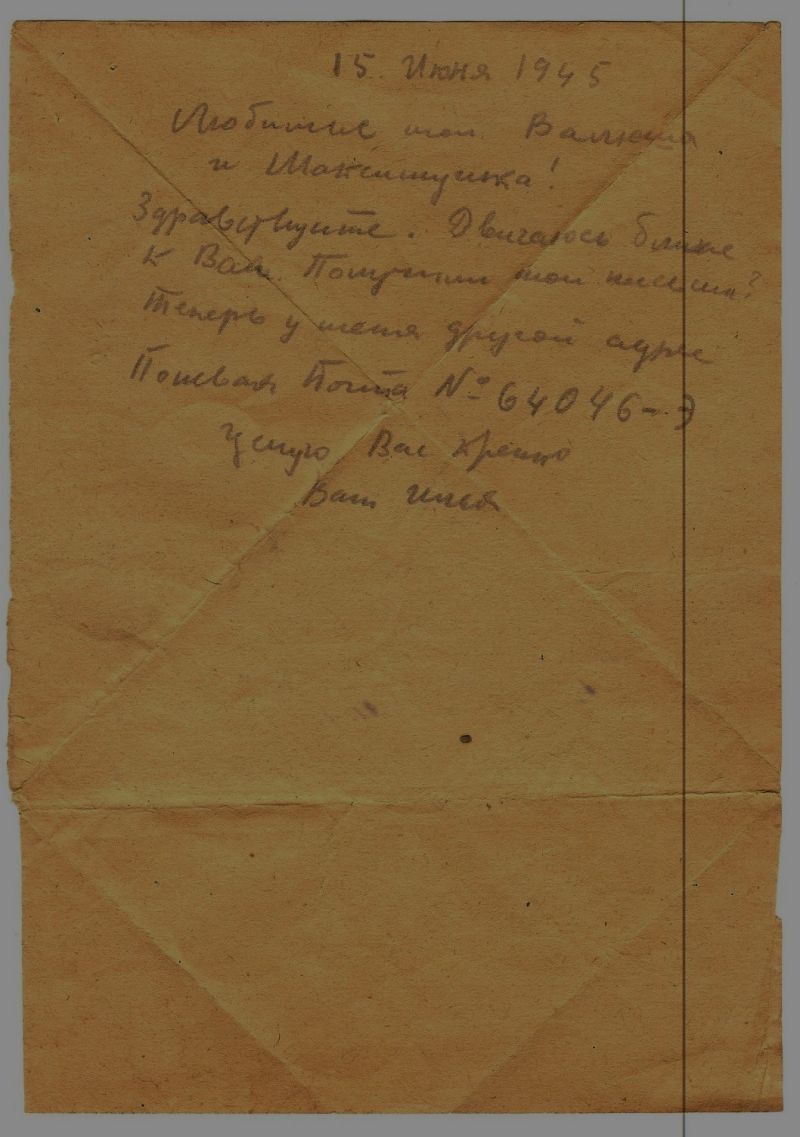 15. Июня 1945
Любимые мои Валюша
и Максимушка!
Здравствуйте. Двигаюсь ближе
к Вам. Получили мои письма?
Теперь у меня другой адрес
Полевая Почта № 64046-Э
Целую Вас крепко
Ваш Илья